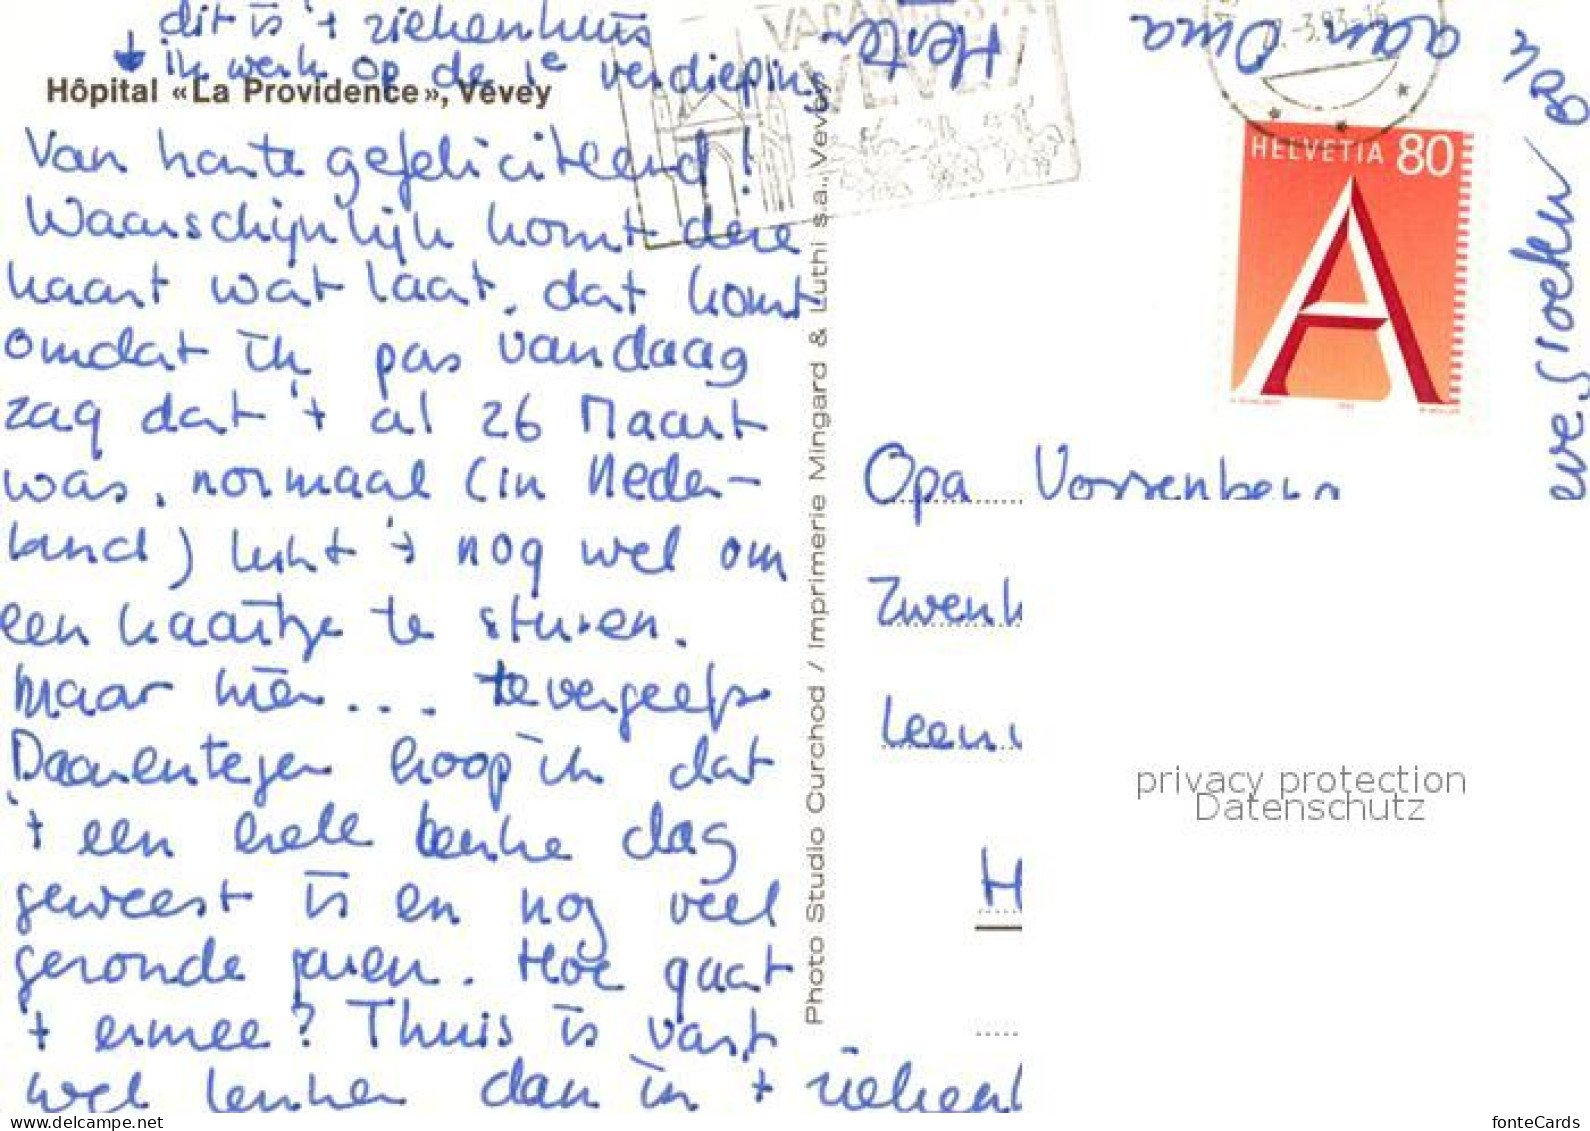 dit is 't ziekenhuis
ik werk op de 1e verdieping
Hôpital «La Providence», Vevey
Van harte gefeliciteerd!
Waarschijnlijk komt deze
kaart wat laat, dat komt
omdat ik pas vandaag
zag dat 't al 26 Maart
was, normaal (in Neder-
land) lukt 't nog wel om
een kaartje te sturen.
Maar hier... tevergeefs
Daarentegen hoop ik dat
't een hele leuke dag
geweest is en nog veel
gezonde jaren. Hoe gaat
't ermee? Thuis is vast
wel leuker dan in 't ziekenh
Photo Studio Curchod / Imprimerie Mingard & Luthi s.a., Vevey
VEVEY
HELVETIA 80
A
Opa Vossenberg
Zwenk
Leen
H
privacy protection
Datenschutz
ook
aan Oma
Hester
www.delcampe.net
fonteCards